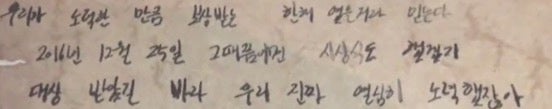 우리가 노력한 만큼 보상받는 한해 였을거라 믿는다
2016년 12월 25일 그때쯤에건 시상식도 했겠지
대상 받았길 바라 우리 진짜 열심히 노력했잖아